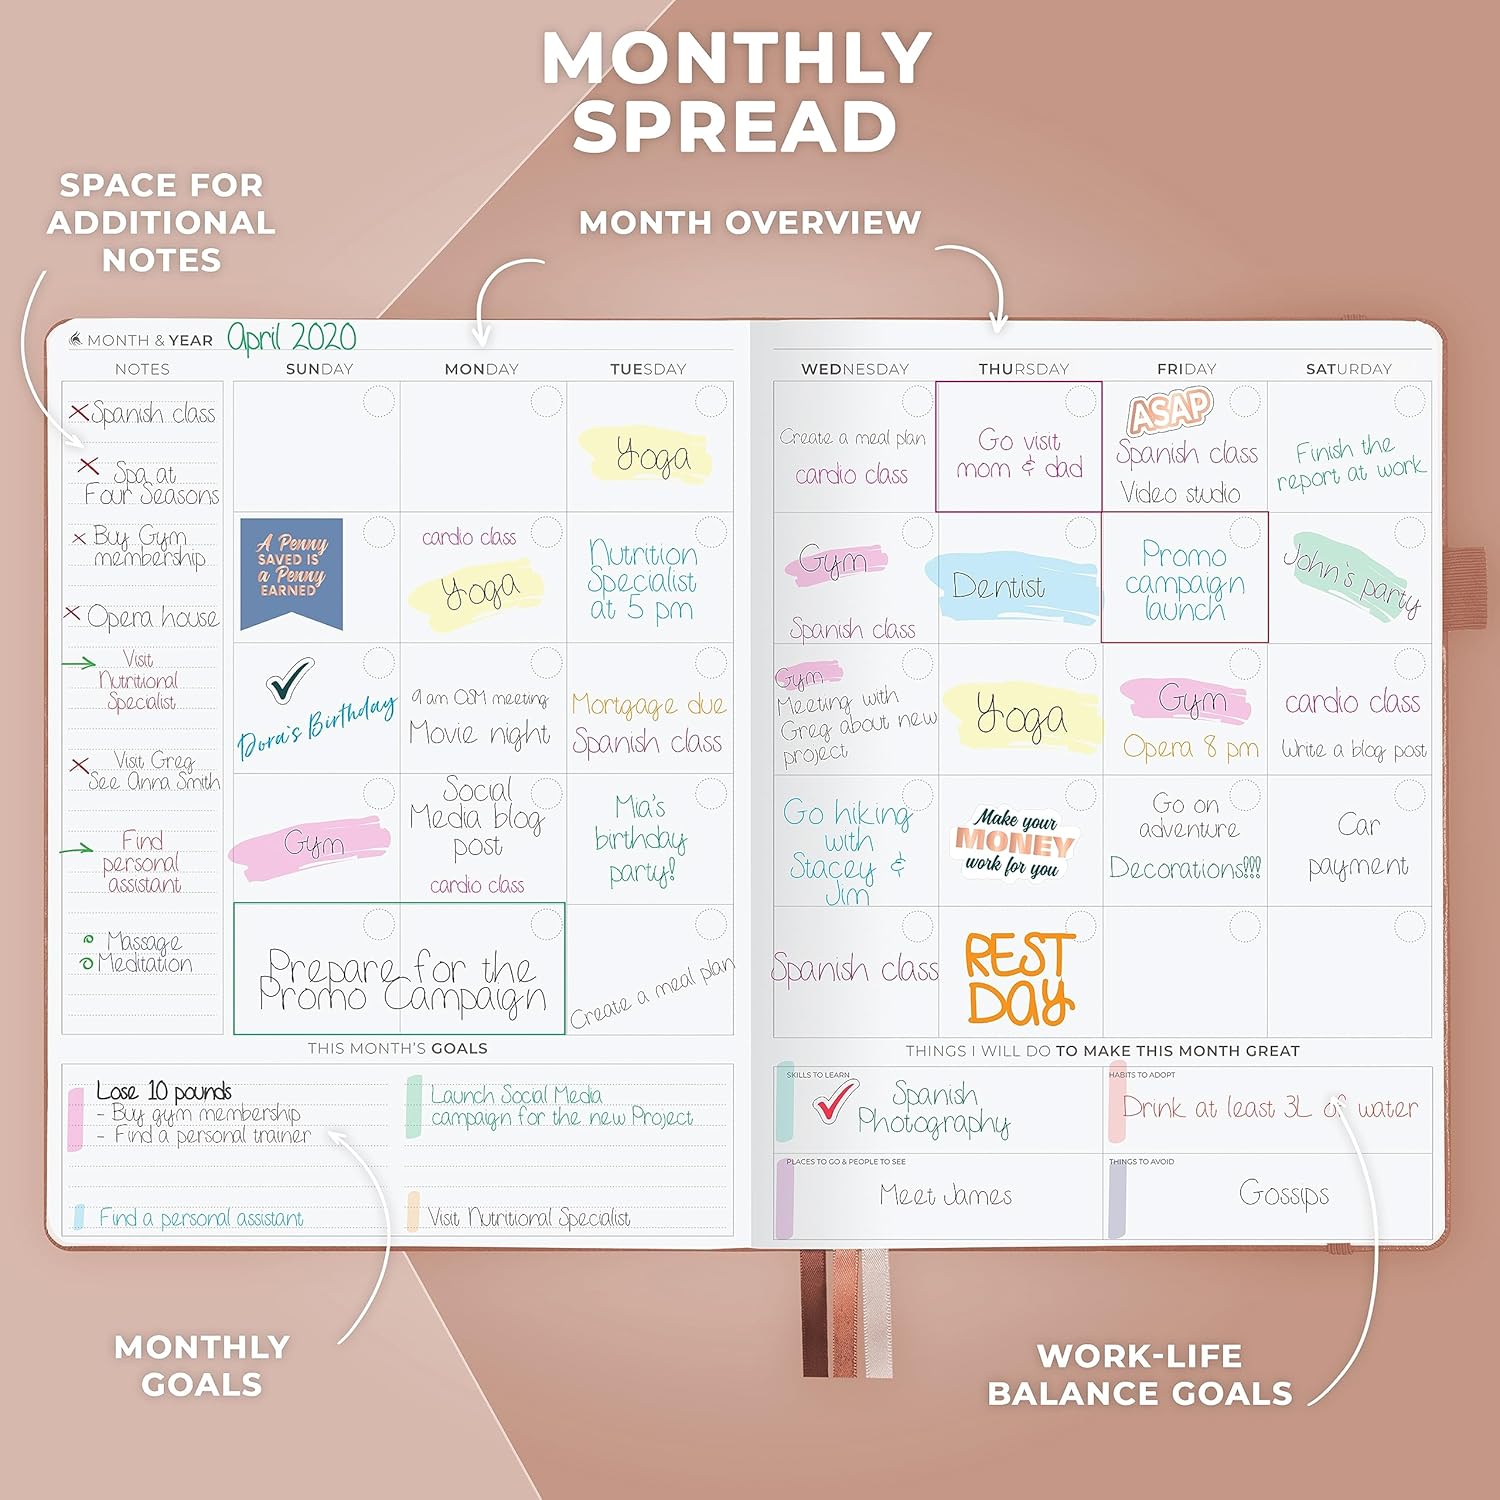 MONTHLY
SPREAD
SPACE FOR
ADDITIONAL
NOTES
MONTH OVERVIEW
MONTH & YEAR April 2020
NOTES
SUNDAY MONDAY TUESDAY WEDNESDAY THURSDAY FRIDAY SATURDAY
Spanish class
Spa at
Four Seasons
Buy Gym
membership
Opera house
Visit
Nutritional
Specialist
Visit Greg
See Anna Smith
Find
personal
assistant
Massage
Meditation
Yoga
Create a meal plan
cardio class
Go visit
mom & dad
ASAP
Spanish class
Video studio
Finish the
report at work
A Penny
SAVED IS
a Penny
EARNED
cardio class
Yoga
Nutrition
Specialist
at 5 pm
Gym
Spanish class
Dentist
Promo
campaign
launch
John's party
Dora's Birthday
9 am OSM meeting
Movie night
Mortgage due
Spanish class
Gym
Meeting with
Greg about new
project
Yoga
Gym
Opera 8 pm
cardio class
Write a blog post
Gym
Social
Media blog
post
cardio class
Mia's
birthday
party!
Go hiking
with
Stacey &
Jim
Make your
MONEY
work for you
Go on
adventure
Decorations!!!
Car
payment
Prepare for the
Promo Campaign
Create a meal plan
Spanish class
REST
DAY
THIS MONTH'S GOALS
Lose 10 pounds
- Buy gym membership
- Find a personal trainer
Find a personal assistant
Launch Social Media
campaign for the new Project
Visit Nutritional Specialist
THINGS I WILL DO TO MAKE THIS MONTH GREAT
SKILLS TO LEARN
Spanish
Photography
HABITS TO ADOPT
Drink at least 3L of water
PLACES TO GO & PEOPLE TO SEE
Meet James
THINGS TO AVOID
Gossips
MONTHLY
GOALS
WORK-LIFE
BALANCE GOALS